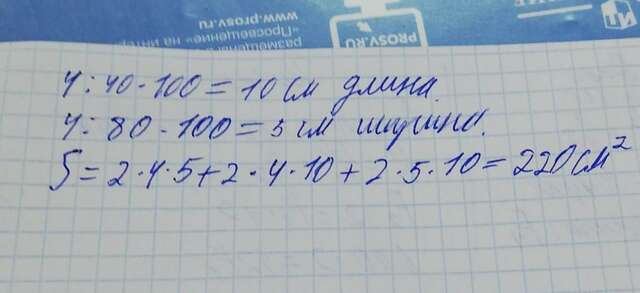 www.prosv.ru
"Просвещение" на интер
размещены
PROSV.RU
4:40·100=10 см длина.
4:80·100=5 см ширина.
S=2·4·5+2·4·10+2·5·10=220 см²